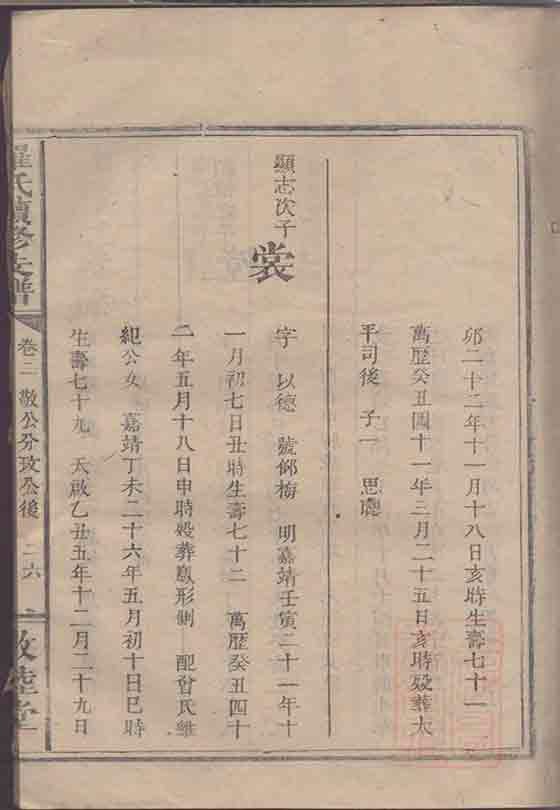 卯二十二年十一月十八日亥時生壽七十一
萬歷癸丑四十一年三月二十五日亥時歿葬太
平司後 子一 思驄
顯志次子
裳
字 以德 號鄉梅 明嘉靖壬寅二十一年十
一月初七日丑時生壽七十二 萬歷癸丑四十
二年五月十八日申時歿葬鳳形側 配曾氏維
紀公女 嘉靖丁未二十六年五月初十日巳時
生壽七十九 天啟乙丑五年十二月二十九日
羅氏續修支譜
卷二 敬公分攻公後 二六
敦睦堂